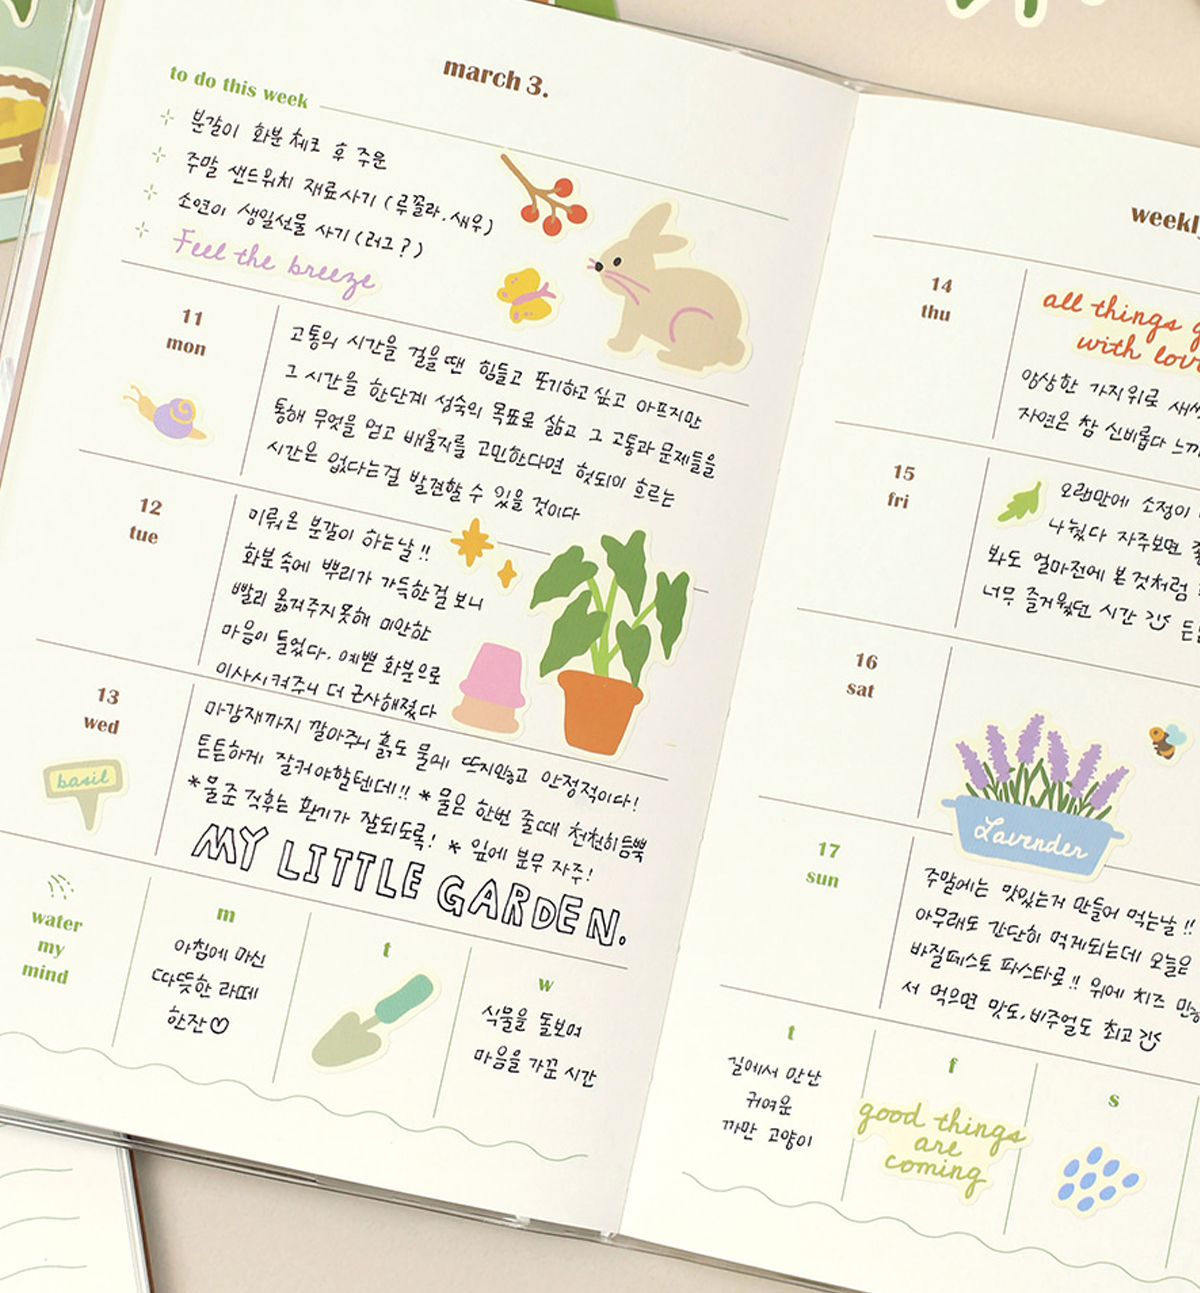 march 3.
to do this week
분갈이 화분 체크 후 주문
주말 샌드위치 재료사기 (루꼴라, 새우)
소연이 생일선물 사기 (러그?)
Feel the breeze
11
mon
고통의 시간을 겪을 땐 힘들고 포기하고 싶고 아프지만
그 시간을 한단계 성숙의 목표로 삼고 그 고통과 문제들을
통해 무엇을 얻고 배울지를 고민한다면 헛되이 흐르는
시간은 없다는걸 발견할 수 있을 것이다
12
tue
미뤄온 분갈이 하는날!!
화분 속에 뿌리가 가득한걸 보니
빨리 옮겨주지못해 미안한
마음이 들었다. 예쁜 화분으로
이사시켜주니 더 근사해졌다
13
wed
basil
마감재까지 깔아주니 흙도 물에 뜨지않고 안정적이다!
튼튼하게 잘커야할텐데!! * 물은 한번 줄때 천천히 듬뿍
*물준 직후는 환기가 잘되도록! * 잎에 분무 자주!
MY LITTLE GARDEN.
water
my
mind
m
아침에 마신
따뜻한 라떼
한잔♡
t
w
식물을 돌보며
마음을 가꾼 시간
weekly
14
thu
all things g
with lov
앙상한 가지위로 새싹
자연은 참 신비롭다 느끼
15
fri
오랜만에 소정이
나눴다 자주보면
봐도 얼마전에 본것처럼
너무 즐거웠던 시간
16
sat
Lavender
17
sun
주말에는 맛있는거 만들어 먹는날!!
아무래도 간단히 먹게되는데 오늘은
바질페스토 파스타로!! 위에 치즈
서 먹으면 맛도, 비주얼도 최고
t
길에서 만난
귀여운
까만 고양이
f
good things
are
coming
s